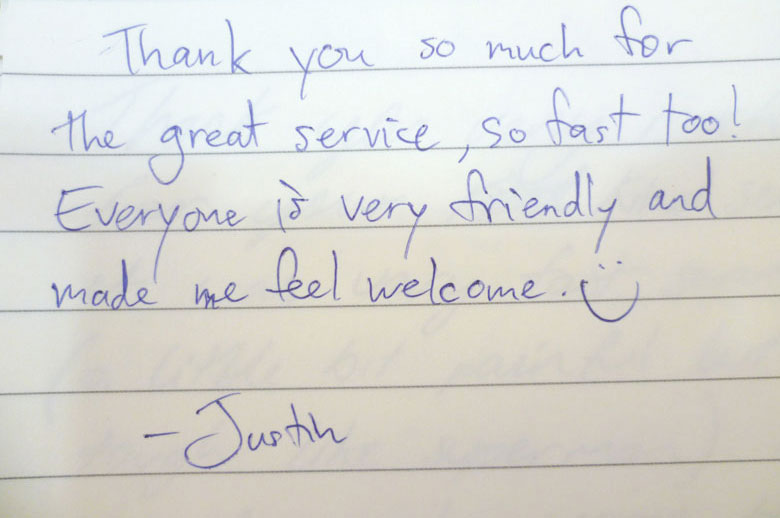 Thank you so much for
the great service, so fast too!
Everyone is very friendly and
made me feel welcome. :)
- Justin